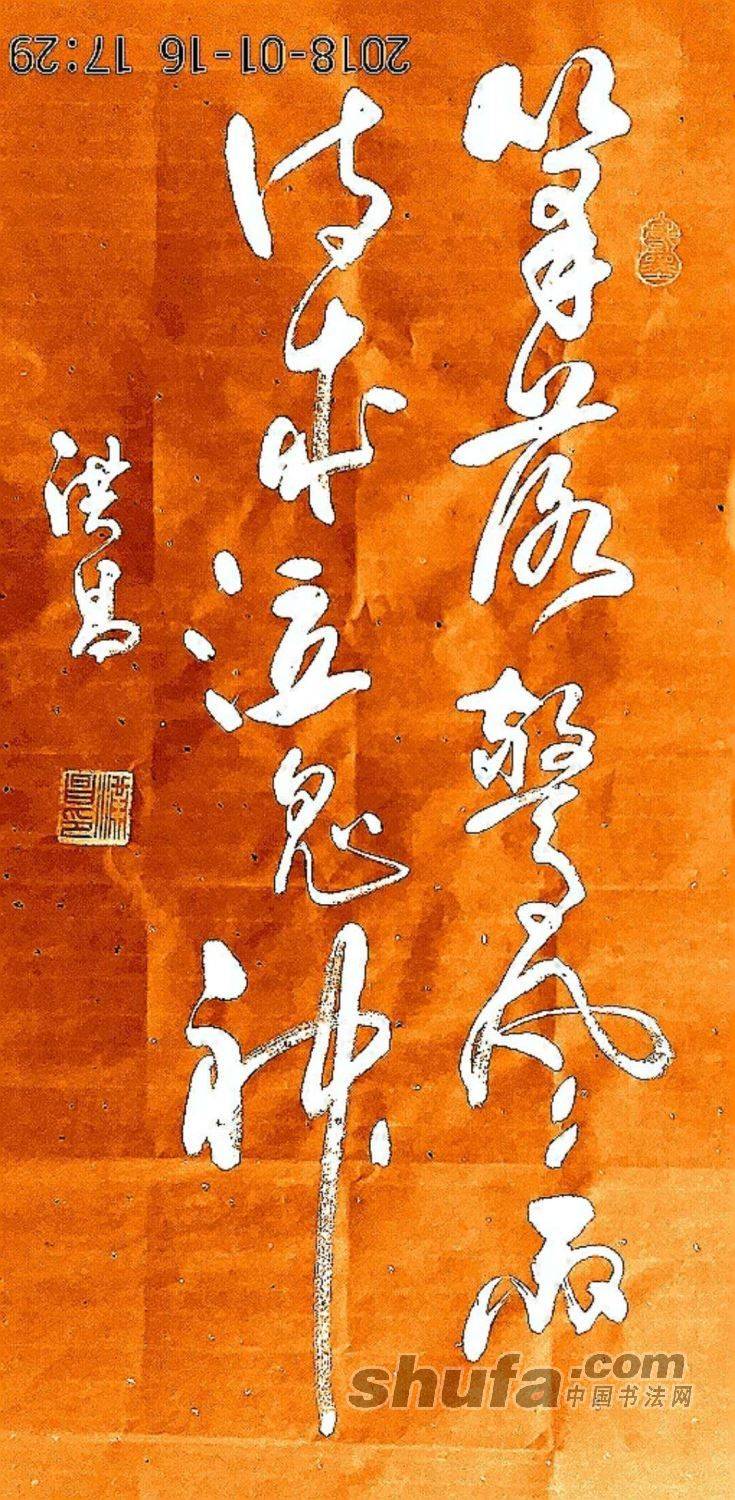 2018-01-16 17:29
筆落驚風雨
詩成泣鬼神
洪昌
shufa.com
中国书法网